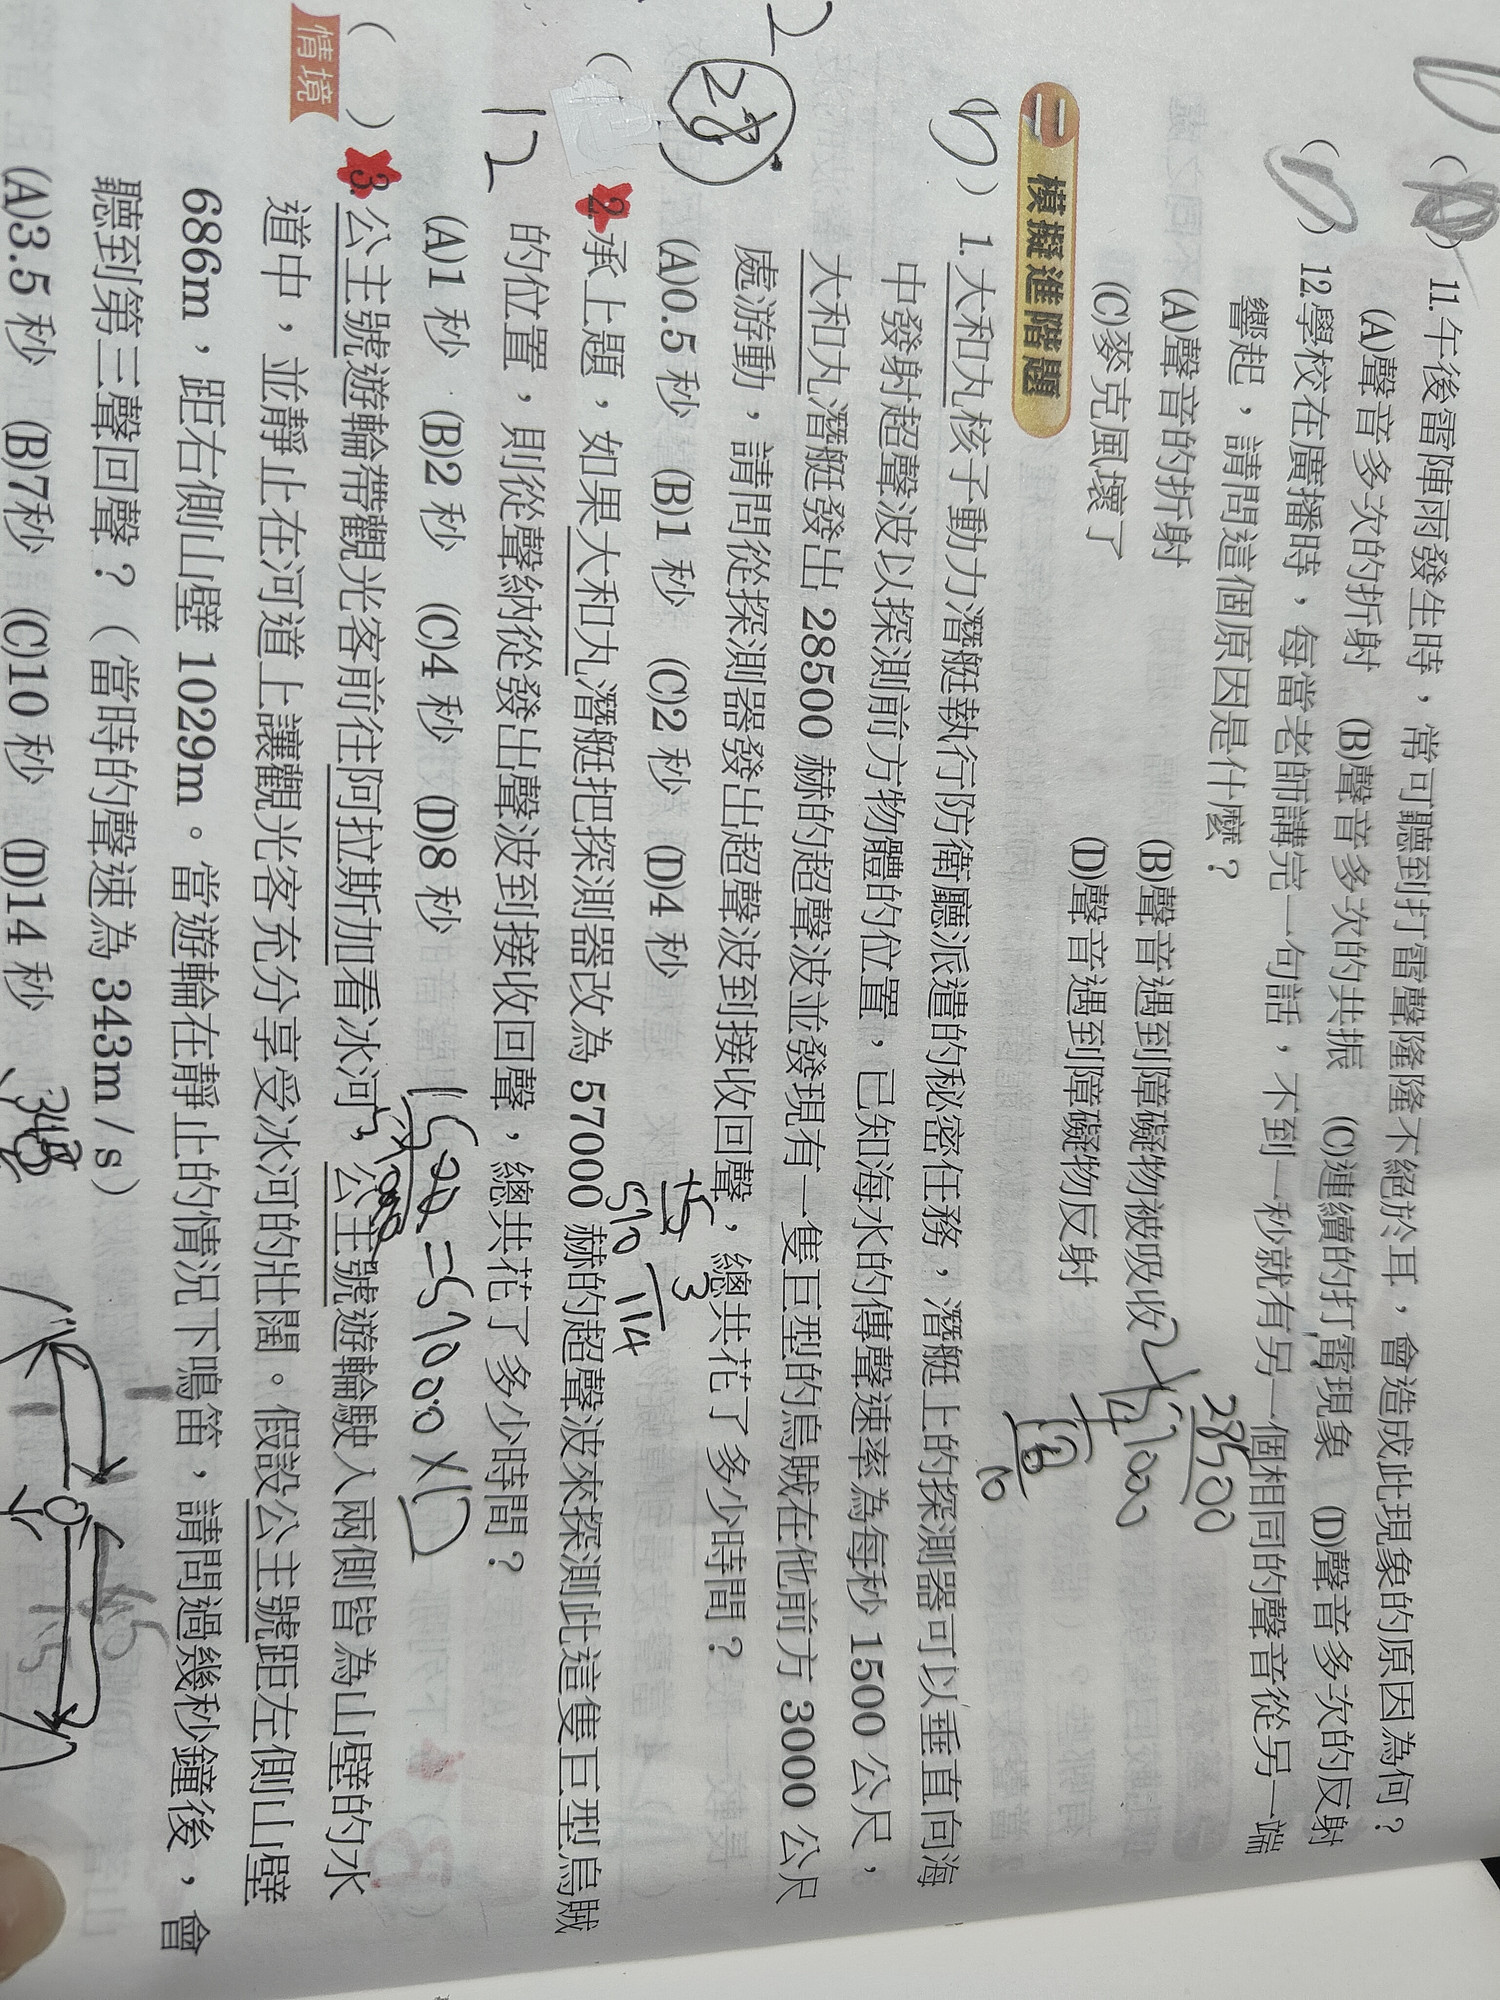 11.午後雷陣雨發生時，常可聽到打雷聲隆隆不絕於耳，會造成此現象的原因為何？
(A)聲音多次的折射　(B)聲音多次的共振　(C)連續的打雷現象　(D)聲音多次的反射
( D ) 12.學校在廣播時，每當老師講完一句話，不到一秒就有另一個相同的聲音從另一端
響起，請問這個原因是什麼？
(A)聲音的折射　(B)聲音遇到障礙物被吸收
(C)麥克風壞了　(D)聲音遇到障礙物反射
28500
二 模擬進階題
1.大和丸核子動力潛艇執行防衛廳派遣的秘密任務，潛艇上的探測器可以垂直向海
中發射超聲波以探測前方物體的位置，已知海水的傳聲速率為每秒 1500 公尺，
大和丸潛艇發出 28500 赫的超聲波並發現有一隻巨型的烏賊在他前方 3000 公尺
處游動，請問從探測器發出超聲波到接收回聲，總共花了多少時間？
(A)0.5 秒　(B)1 秒　(C)2 秒　(D)4 秒
15 3
570 114
( ) 2.承上題，如果大和丸潛艇把探測器改為 57000 赫的超聲波來探測此這隻巨型烏賊
的位置，則從聲納從發出聲波到接收回聲，總共花了多少時間？
(A)1 秒　(B)2 秒　(C)4 秒　(D)8 秒
12
1500=57000×
( ) 3.公主號遊輪帶觀光客前往阿拉斯加看冰河，公主號遊輪駛入兩側皆為山壁的水
情境
道中，並靜止在河道上讓觀光客充分享受冰河的壯闊。假設公主號距左側山壁
686m，距右側山壁 1029m。當遊輪在靜止的情況下鳴笛，請問過幾秒鐘後，會
聽到第三聲回聲？（當時的聲速為 343m / s）
(A)3.5 秒　(B)7秒　(C)10 秒　(D)14 秒
343